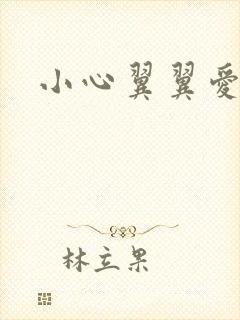 小心翼翼愛
林立果